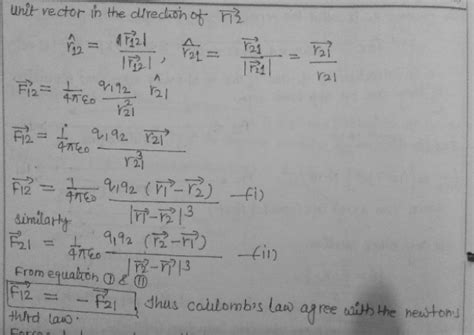 unit vector in the direction of r⃗12
r̂12 = |r⃗12| / |r⃗12| , r̂21 = r⃗21 / |r⃗21| = r⃗21 / r21
F⃗12 = 1/4πε0 q1q2 / r²21 r̂21
F⃗12 = 1/4πε0 q1q2 r⃗21 / r³21
F⃗12 = 1/4πε0 q1q2 (r⃗1 - r⃗2) / |r⃗1 - r⃗2|³ —(i)
similarly
F⃗21 = 1/4πε0 q1q2 (r⃗2 - r⃗1) / |r⃗2 - r⃗1|³ —(ii)
From equation (I) & (II)
F⃗12 = - F⃗21 Thus coulomb's law agree with the newton's
third law.